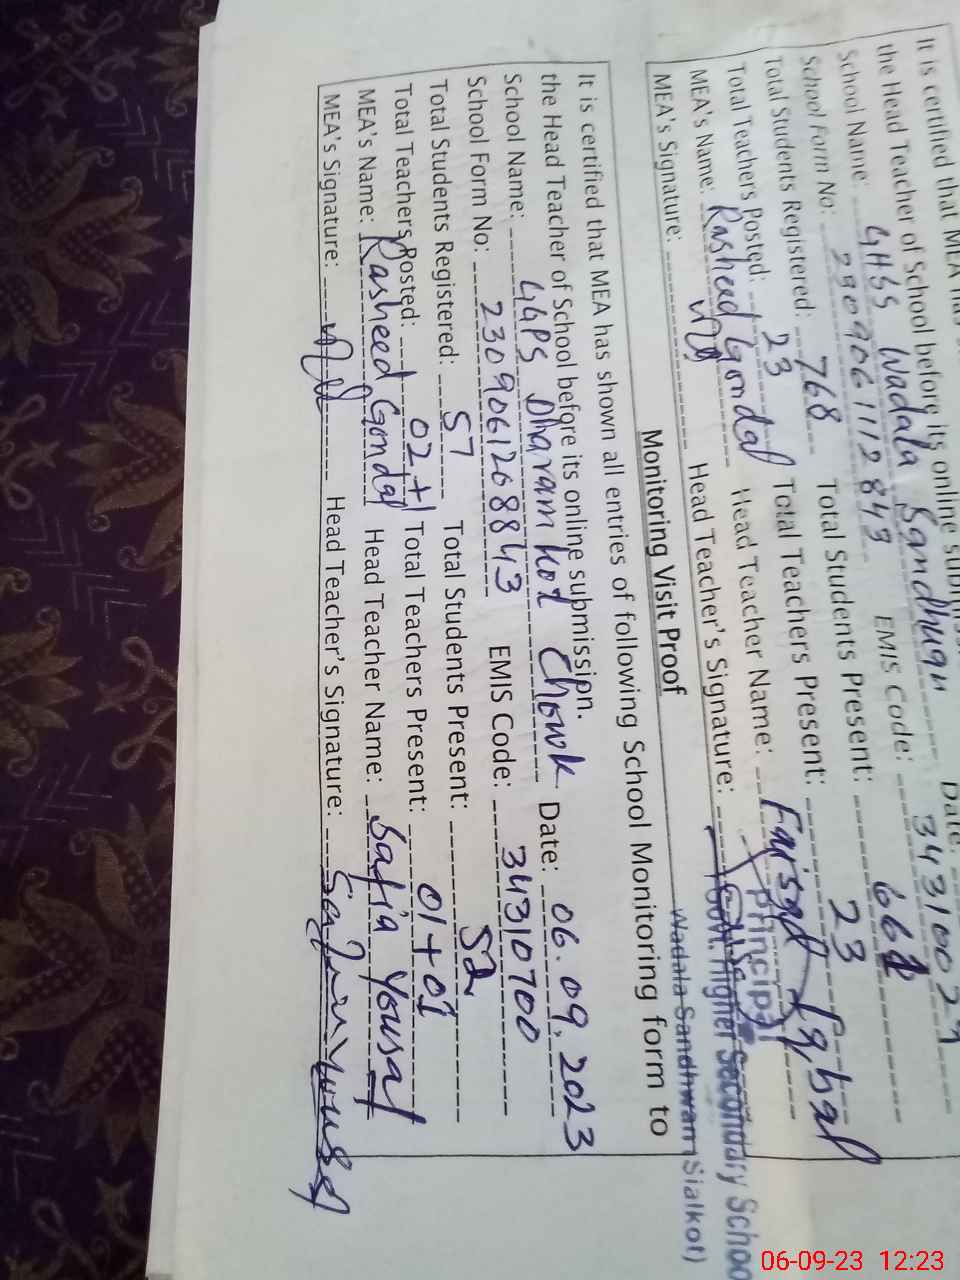 It is certified that MEA has
the Head Teacher of School before its online
School Name: GHSS Wadala Sandhuan Date:
School Form No: 2309061112843 EMIS Code: 34310029
Total Students Registered: 768 Total Students Present: 661
Total Teachers Posted: 23 Total Teachers Present: 23
MEA's Name: Rasheed Gondal Head Teacher Name: Faisal Iqbal
MEA's Signature: Head Teacher's Signature:
Principal
Govt. Higher Secondary School
Wadala Sandhwan Sialkot)
Monitoring Visit Proof
It is certified that MEA has shown all entries of following School Monitoring form to
the Head Teacher of School before its online submission.
School Name: GGPS Dharam kot Chowk Date: 06.09.2023
School Form No: 2309061268843 EMIS Code: 34310700
Total Students Registered: 57 Total Students Present: 52
Total Teachers Posted: 02+1 Total Teachers Present: 01+01
MEA's Name: Rasheed Gondal Head Teacher Name: Safia Yousaf
MEA's Signature: Head Teacher's Signature: Safia Yousaf
06-09-23 12:23